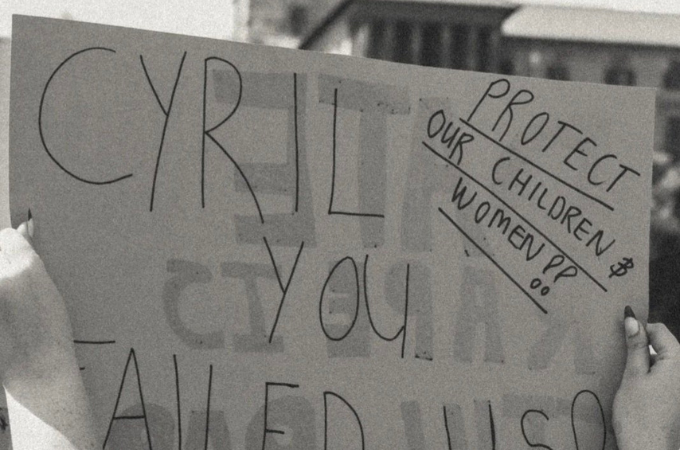 CYRIL
YOU
FAILED US
PROTECT
OUR CHILDREN &
WOMEN!!